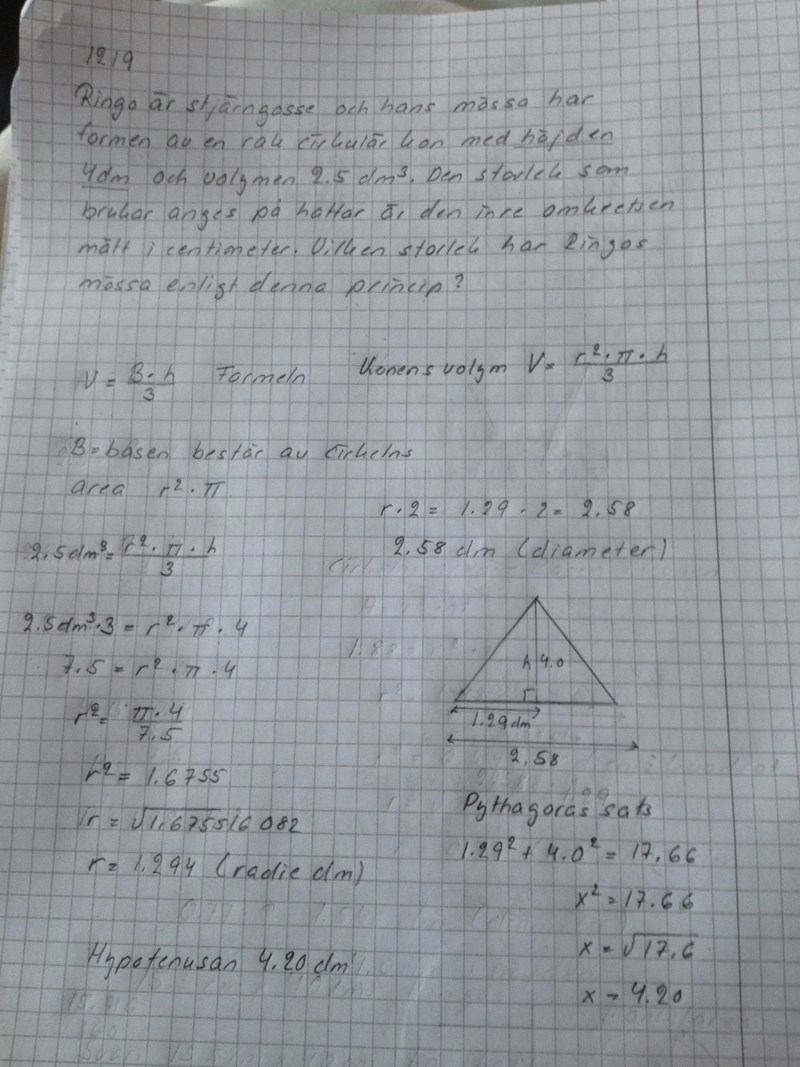 1219
Ringo är stjärngosse och hans mössa har
formen av en rak cirkulär kon med höjden
4dm och volymen 2.5 dm³. Den storlek som
brukar anges på hattar är den inre omkretsen
mätt i centimeter. Vilken storlek har Ringos
mössa enligt denna princip?
V = B·h/3 Formeln Konens volym V = r²·π·h/3
B = basen består av cirkelns
area r²·π
r·2 = 1.29 · 2 = 2.58
2.58 dm (diameter)
2.5dm³ = r²·π·h/3
2.5dm³·3 = r²·π·4
7.5 = r²·π·4
r² = π·4/7.5
r² = 1.6755
r = √1.675516082
r = 1.294 (radie dm)
Hypotenusan 4.20 dm
h 4.0
1.29dm
2.58
Pythagoras sats
1.29² + 4.0² = 17.66
x² = 17.66
x = √17.6
x = 4.20